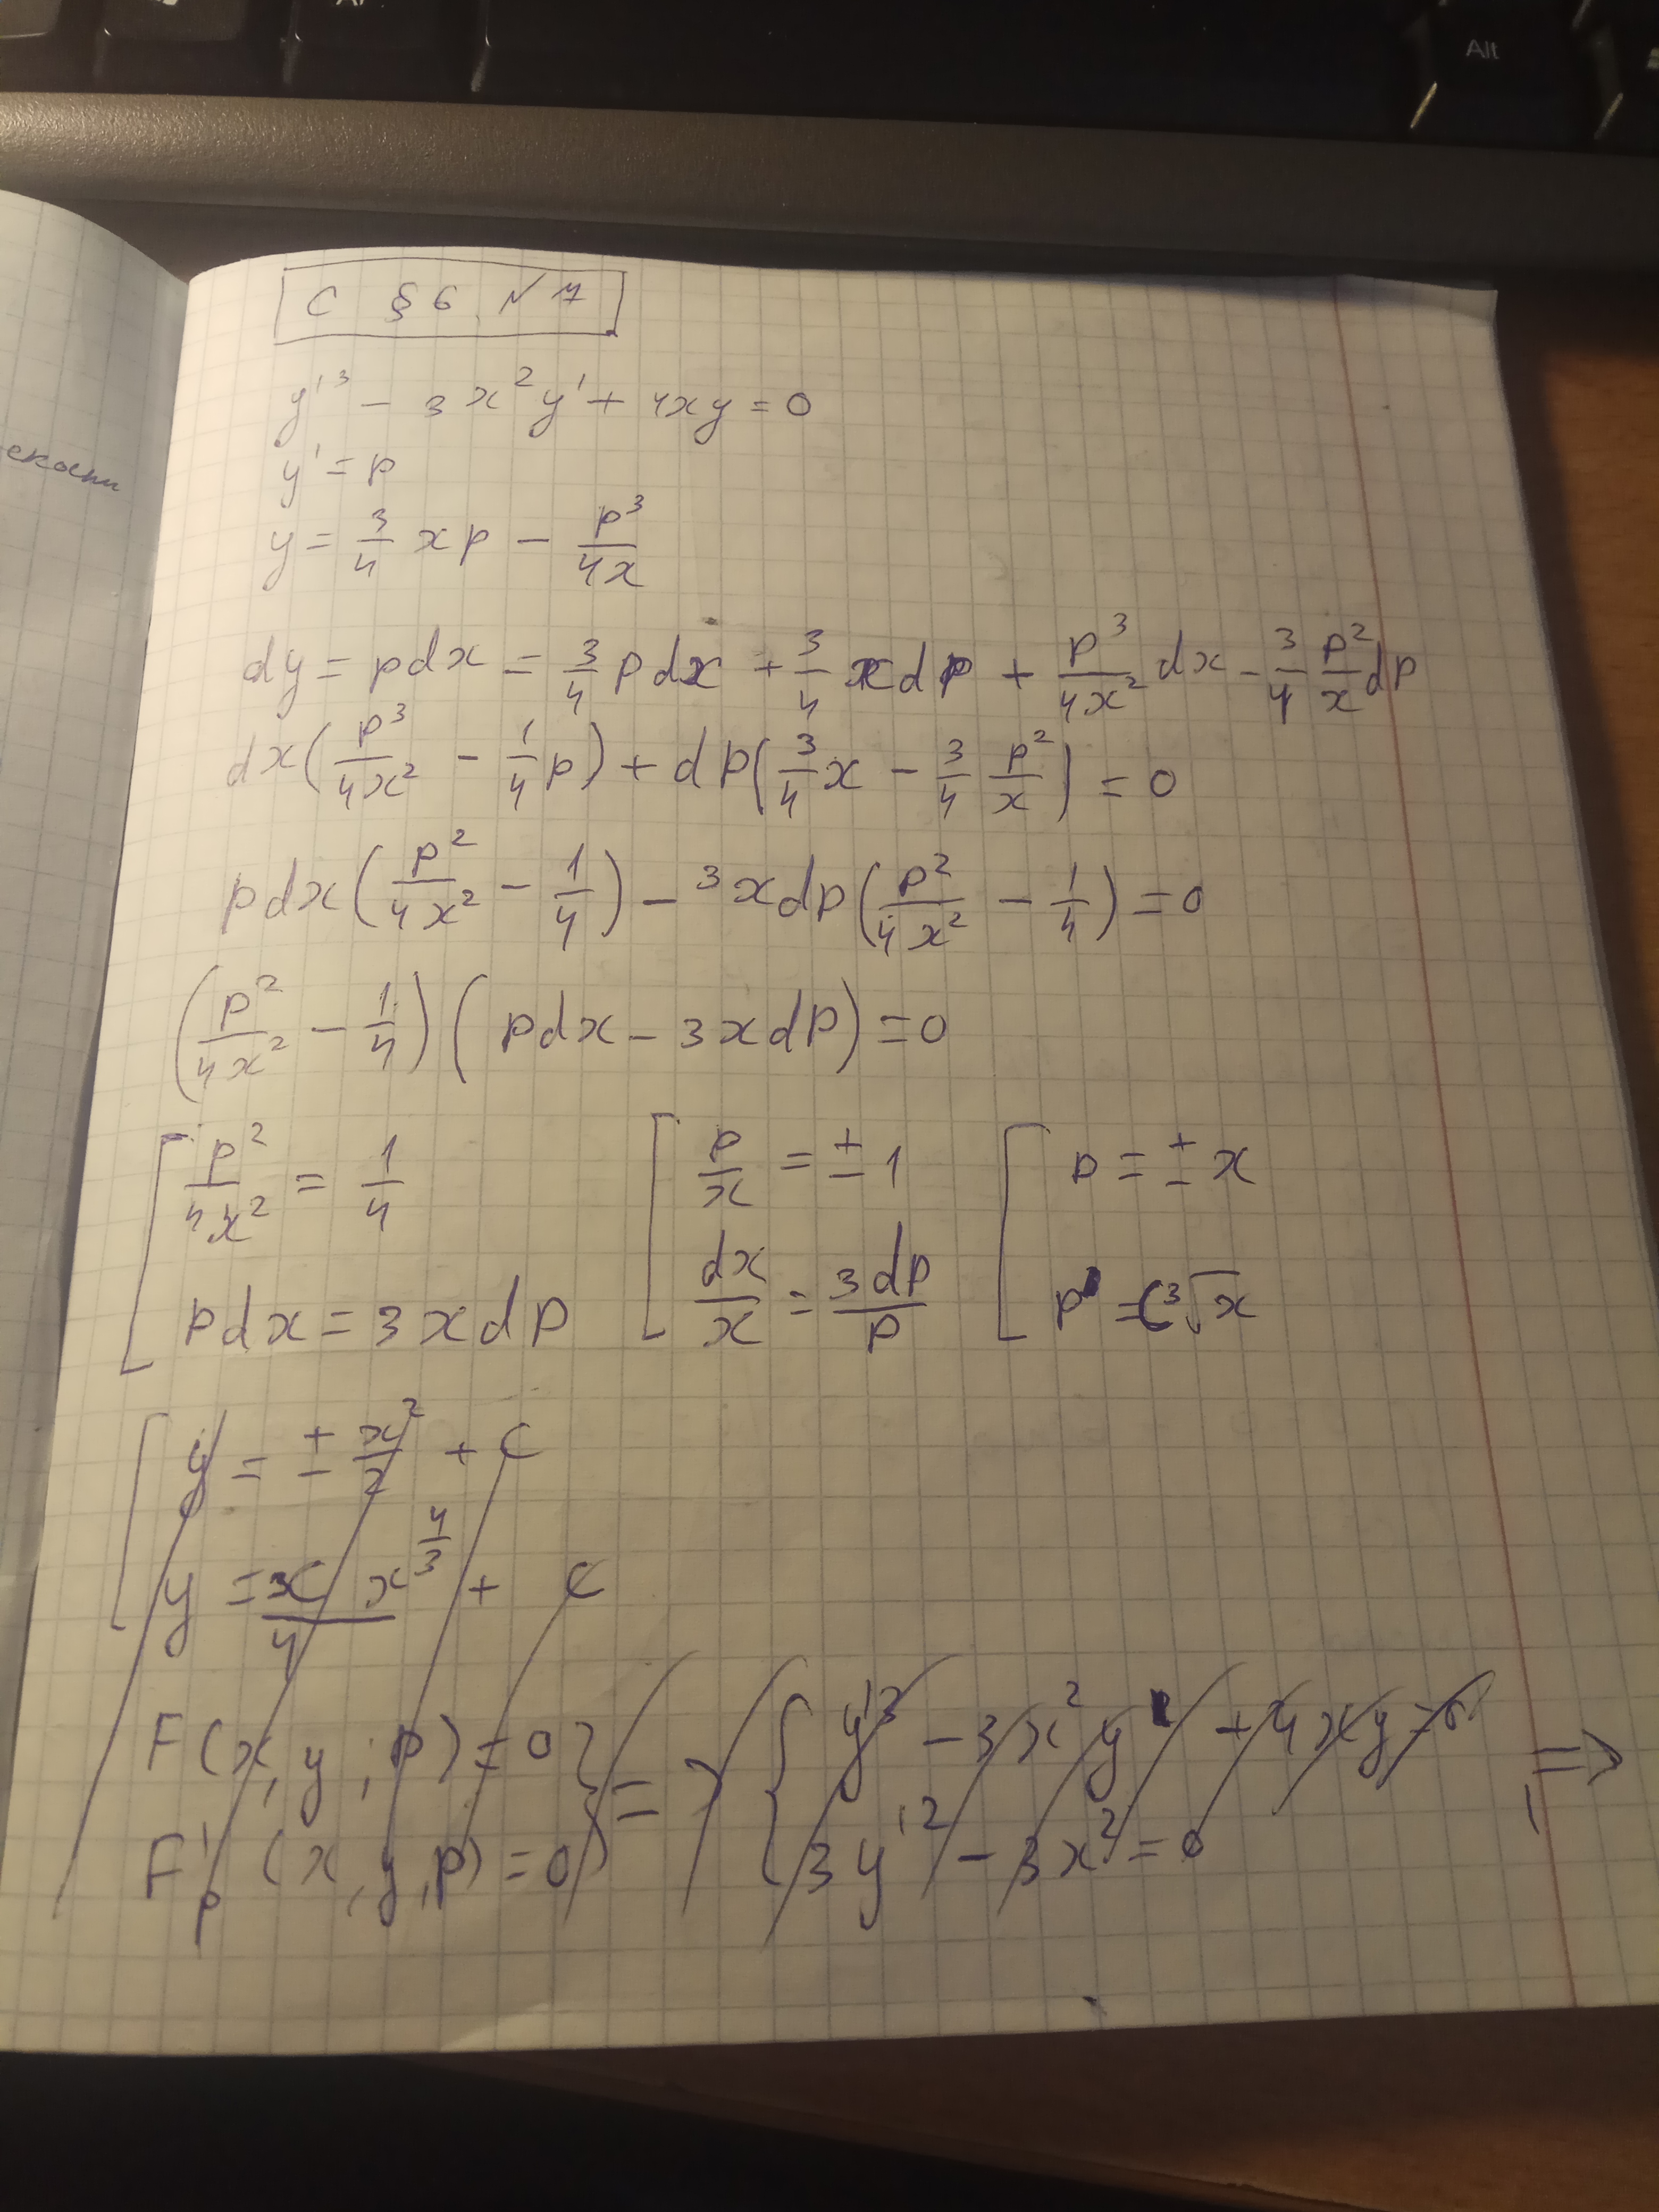 Alt
С § 6 № 7
екости
y'³ - 3x²y' + 4xy = 0
y' = p
y = 3/4 xp - p³/4x
dy = pdx = 3/4 pdx + 3/4 xdp + p³/4x² dx - 3/4 p²/x dp
dx(p³/4x² - 1/4 p) + dp(3/4 x - 3/4 p²/x) = 0
pdx(p²/4x² - 1/4) - 3xdp(p²/4x² - 1/4) = 0
(p²/4x² - 1/4)(pdx - 3xdp) = 0
[ p²/4x² = 1/4 [ p/x = ±1 [ p = ±x
pdx = 3xdp dx/x = 3dp/p p = C∛x
[ y = ± x²/2 + C
y = 3C x^(4/3)/4 + C
F(x, y, p) = 0 } => { y'³ - 3x²y' + 4xy = 0 =>
F'p (x, y, p) = 0 3y'² - 3x² = 0